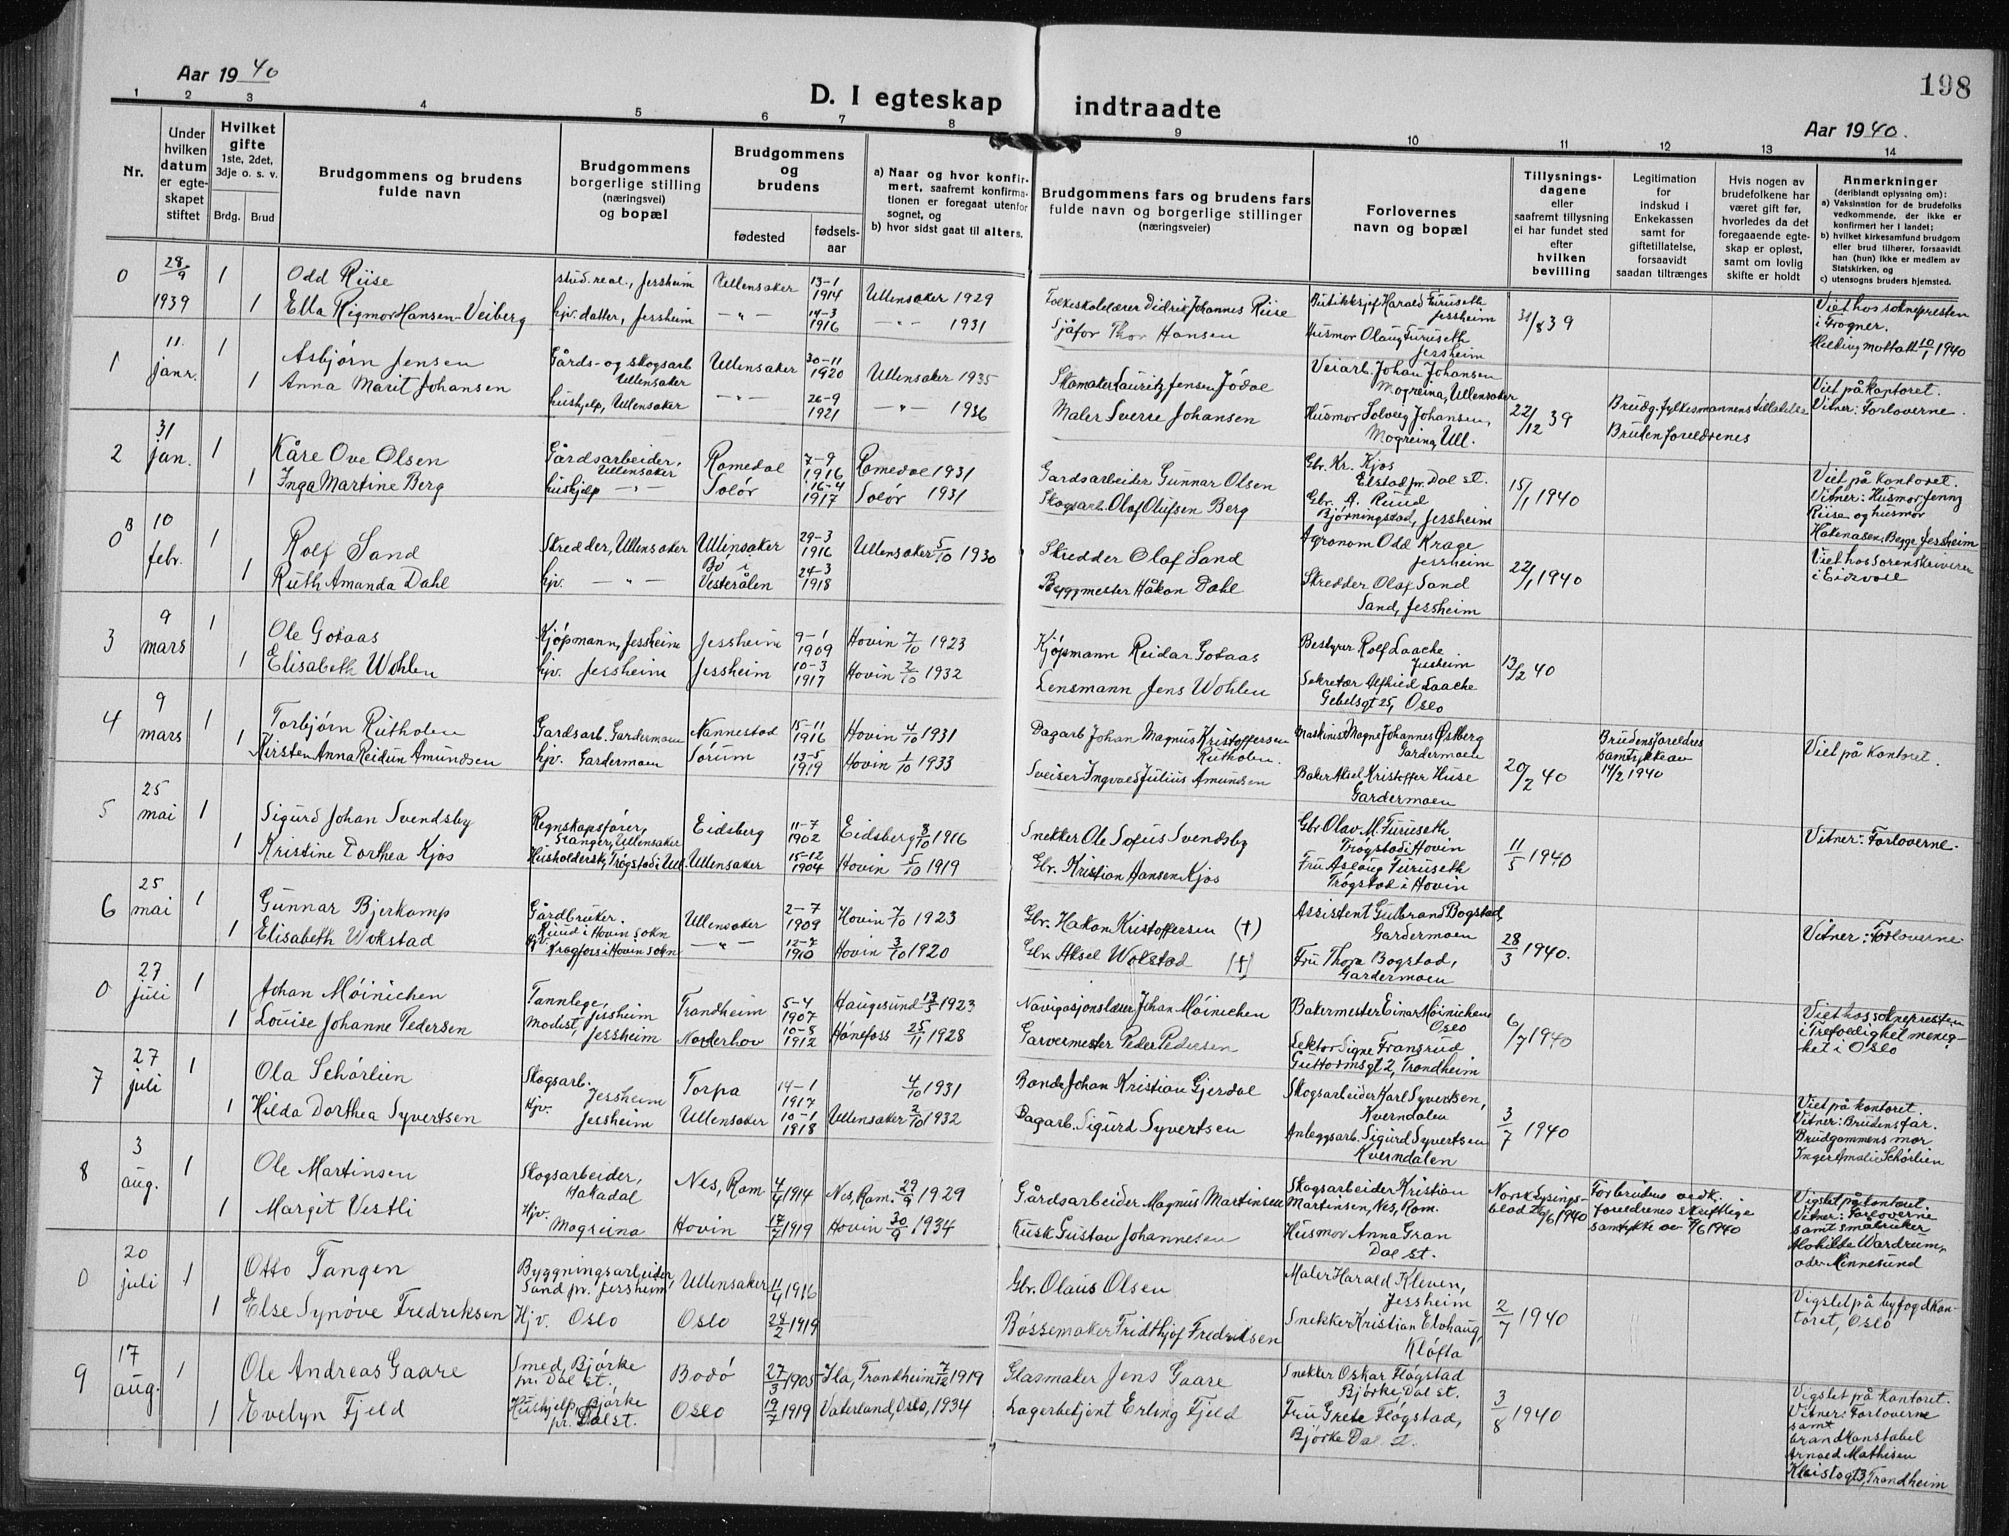 Aar 1940
D. I egteskap
indtraadte
198
Aar 1940.
1 2 3 4 5 6 7 8 9 10 11 12 13 14
Nr.
Under hvilken datum er egte-skapet stiftet
Hvilket gifte
1ste, 2det, 3dje o. s. v.
Brdg. Brud
Brudgommens og brudens
fulde navn
Brudgommens
borgerlige stilling
(næringsvei)
og bopæl
Brudgommens
og
brudens
fødested
fødsels-
aar
a) Naar og hvor konfir-
mert, saafremt konfirma-
tionen er foregaat utenfor
sognet, og
b) hvor sidst gaat til alters.
Brudgommens fars og brudens fars
fulde navn og borgerlige stillinger
(næringsveier)
Forlovernes
navn og bopæl
Tillysnings-
dagene
eller
saafremt tillysning
ei har fundet sted
efter
hvilken
bevilling
Legitimation
for
indskud i
Enkekassen
samt for
giftetillatelse,
forsaavidt
saadan tiltrænges
Hvis nogen av
brudefolkene har
været gift før,
hvorledes da det
foregaaende egte-
skap er opløst,
samt om lovlig
skifte er holdt
Anmerkninger
(deriblandt oplysning om):
a) Vaksination for de brudefolks
vedkommende, der ikke er
konfirmert her i landet;
b) hvilket kirkesamfund brudgom
eller brud tilhører, forsaavidt
han (hun) ikke er medlem av
Statskirken, og
c) utensogns bruders hjemsted.
0 28/9 1939 1 Odd Riise stud. real., Jessheim Ullensaker 13-1 1914 Ullensaker 1929 Folkeskolelærer Didrik Johannes Riise Butikksjef Harald Furuseth Jessheim 31/8 39 Viet hos sokneprest­en i Frogner.
1 Ella Rigmor Hansen-Veiberg hjv. datter, Jessheim -"- 14-3 1916 -"- 1931 Sjåfør Thor Hansen Husmor Olaug Furuseth Jessheim Melding mottatt 10/1 1940
1 11. janr. 1 Asbjørn Jensen Gårds- og skogsarb Ullensaker Ullensaker 30-11 1920 Ullensaker 1935 Skomaker Lauritz Jensen Jødal Veiarb. Johan Johansen Mogreina, Ullensaker 22/12 39 Brudg. fylkesmannens tillatelse Viet på kontoret.
1 Anna Marit Johansen hushjelp, Ullensaker -"- 26-9 1921 -"- 1936 Maler Sverre Johansen Husmor Solveig Johansen, Mogreina, Ull. Bruden foreldrenes Vitner: Forloverne.
2 31 jan. 1 Kåre Ove Olsen Gårdsarbeider, Ullensaker Romedal 7-9 1916 Romedal 1931 Gardsarbeider Gunnar Olsen Gbr. Kr. Kjos Elstad pr. Dal st. 15/1 1940 Viet på kontoret.
1 Inga Martine Berg hushjelp -"- Solør 16-4 1917 Solør 1931 Skogsarb. Olaf Olufsen Berg Gbr. A. Ruud Bjørningstad, Jessheim Vitner: Husmor Jenny Riise og husmor Hakenasen, Begge Jessheim
0 B 10 febr. 1 Rolf Sand Skredder, Ullensaker Ullensaker 29-3 1916 Ullensaker 5/10 1930 Skredder Olaf Sand Agronom Odd Krage Jessheim 22/1 1940 Viet hos Sorenskriveren i Eidsvoll
1 Ruth Amanda Dahl hjv. -"- Bø i Vesterålen 24-3 1918 Byggmester Håkon Dahl Skredder Olaf Sand Sand, Jessheim
3 9 mars 1 Ole Gotaas Kjøpmann, Jessheim Jessheim 9-1 1909 Hovin 7/10 1923 Kjøpmann Reidar Gotaas Bestyrer Rolf Laache Jessheim 13/2 40
1 Elisabeth Wohlen hjv. Jessheim Jessheim 10-3 1917 Hovin 2/10 1932 Lensmann Jens Wohlen Sekretær Alfhild Laache Gebelsgt 25, Oslo
4 9 mars 1 Torbjørn Rutholen Gardsarb. Gardermoen Nannestad 15-11 1916 Hovin 4/10 1931 Dagarb Johan Magnus Kristoffersen Rutholen. Maskinist Magne Johannes Østberg Gardermoen 20/2 40 Brudens foreldres samtykke av 14/2 1940 Viet på kontoret.
1 Kirsten Anna Reidun Amundsen hjv. Gardermoen Sørum 13-5 1919 Hovin 1/10 1933 Sveiser Ingvald Julius Amundsen Baker Aksel Kristoffer Huse Gardermoen
5 25 mai 1 Sigurd Johan Svendsby Regnskapsfører, Stanger, Ullensaker Eidsberg 11-7 1902 Eidsberg 8/10 1916 Snekker Ole Sofus Svendsby Gbr. Olav M. Furuseth Trøgstad i Hovin 11/5 1940 Vitner: Forloverne.
1 Kristine Dorthea Kjos Husholdersk, Trøgstad i Ull Ullensaker 15-12 1904 Hovin 5/10 1919 Gbr. Kristian Hansen Kjos Fru Aslaug Furuseth Trøgstad i Hovin
6 25 mai 1 Gunnar Bjerkamp Gårdbruker. Ruud i Hovin sokn Ullensaker 2-7 1909 Hovin 7/10 1923 Gbr. Hakon Kristoffersen (†) Assistent Gulbrand Bogstad, Gardermoen 28/3 1940. Vitner: Forloverne
1 Elisabeth Wokstad hjv. Kragfoss i Hovin sokn -"- 12-7 1910 Hovin 3/10 1920 Gbr. Aksel Wokstad (†) Fru Thora Bogstad, Gardermoen
0 27 juli 1 Johan Møinichen Tannlege, Jessheim Trondheim 5-4 1907 Haugesund 13/5 1923 Navigasjonslærer Johan Møinichen Bakermester Einar Møinichen Oslo 6/7 1940 Viet hos sognepresten i Trefoldighet menig-
1 Louise Johanne Pedersen Modist, Jessheim Norderhov 10-8 1912 Hønefoss 25/11 1928 Garvermester Peder Pedersen Lektor Signe Fransrud Guttormsgt 2, Trondheim het i Oslo
7 27 juli 1 Ola Schørlien Skogsarb. Jessheim Torpa 14-1 1917 4/10 1931 Bonde Johan Kristian Gjerdal Skogsarbeider Karl Syvertsen, Kverndalen 3/7 1940 Viet på kontoret. Vitner: Brudens far.
1 Hilda Dorthea Syvertsen Hjv. Jessheim Ullensaker 10-1 1918 Ullensaker 2/10 1932 Dagarb. Sigurd Syvertsen Anleggsarb. Sigurd Syvertsen Kverndalen Brudgommens mor Inger Amalie Schørlien
8 3 aug. 1 Ole Martinsen Skogsarbeider, Hakadal Nes, Rom 4/4 1914 Nes, Rom. 29/9 1929 Gårdsarbeider Magnus Martinsen Skogsarbeider Kristian Martinsen, Nes, Rom. Norsk Lysings-blad 26/6 1940 For brudens vedk. foreldrenes skriftlige samtykke av 7/6 1940 Vigslet på kontoret. Vitner: Forloverne
1 Margit Vestli Hjv. Mogreina Hovin 17/7 1919 Hovin 30/9 1934 Kusk Gustav Johannesen Husmor Anna Gran Dal st. samt småbruker Mathilde Wardrum, ader Minnesund
0 20 juli 1 Otto Tangen Byggningsarbeider, Sand pr. Jessheim Ullensaker 11/4 1916 Gbr. Olaus Olsen Maler Harald Kleven, Jessheim 2/7 1940 Vigslet på byfogdkon-
1 Else Synøve Fredriksen Hjv. Oslo Oslo 28/2 1919 Bøssemaker Fridthjof Fredriksen Snekker Kristian Elvhaug, Kløfta toret, Oslo
9 17 aug. 1 Ole Andreas Gaare Smed, Bjørke pr. Dal st. Bodø 27/3 1905 Ila, Trondheim 7/12 1919 Glasmaker Jens Gaare Snekker Oskar Fløgstad Bjørke, Dal st. 3/8 1940 Vigslet på kontoret. Vitner: Forloverne samt
1 Evelyn Fjeld Hushjelp, Bjørke pr. Dal st. Oslo 19/7 1919 Vaterland, Oslo, 1934 Lagerbetjent Erling Fjeld Fru Grete Fløgstad, Bjørke Dal st. brandkonstabel Arnold Mathisen Kleistsgt 3, Trondheim